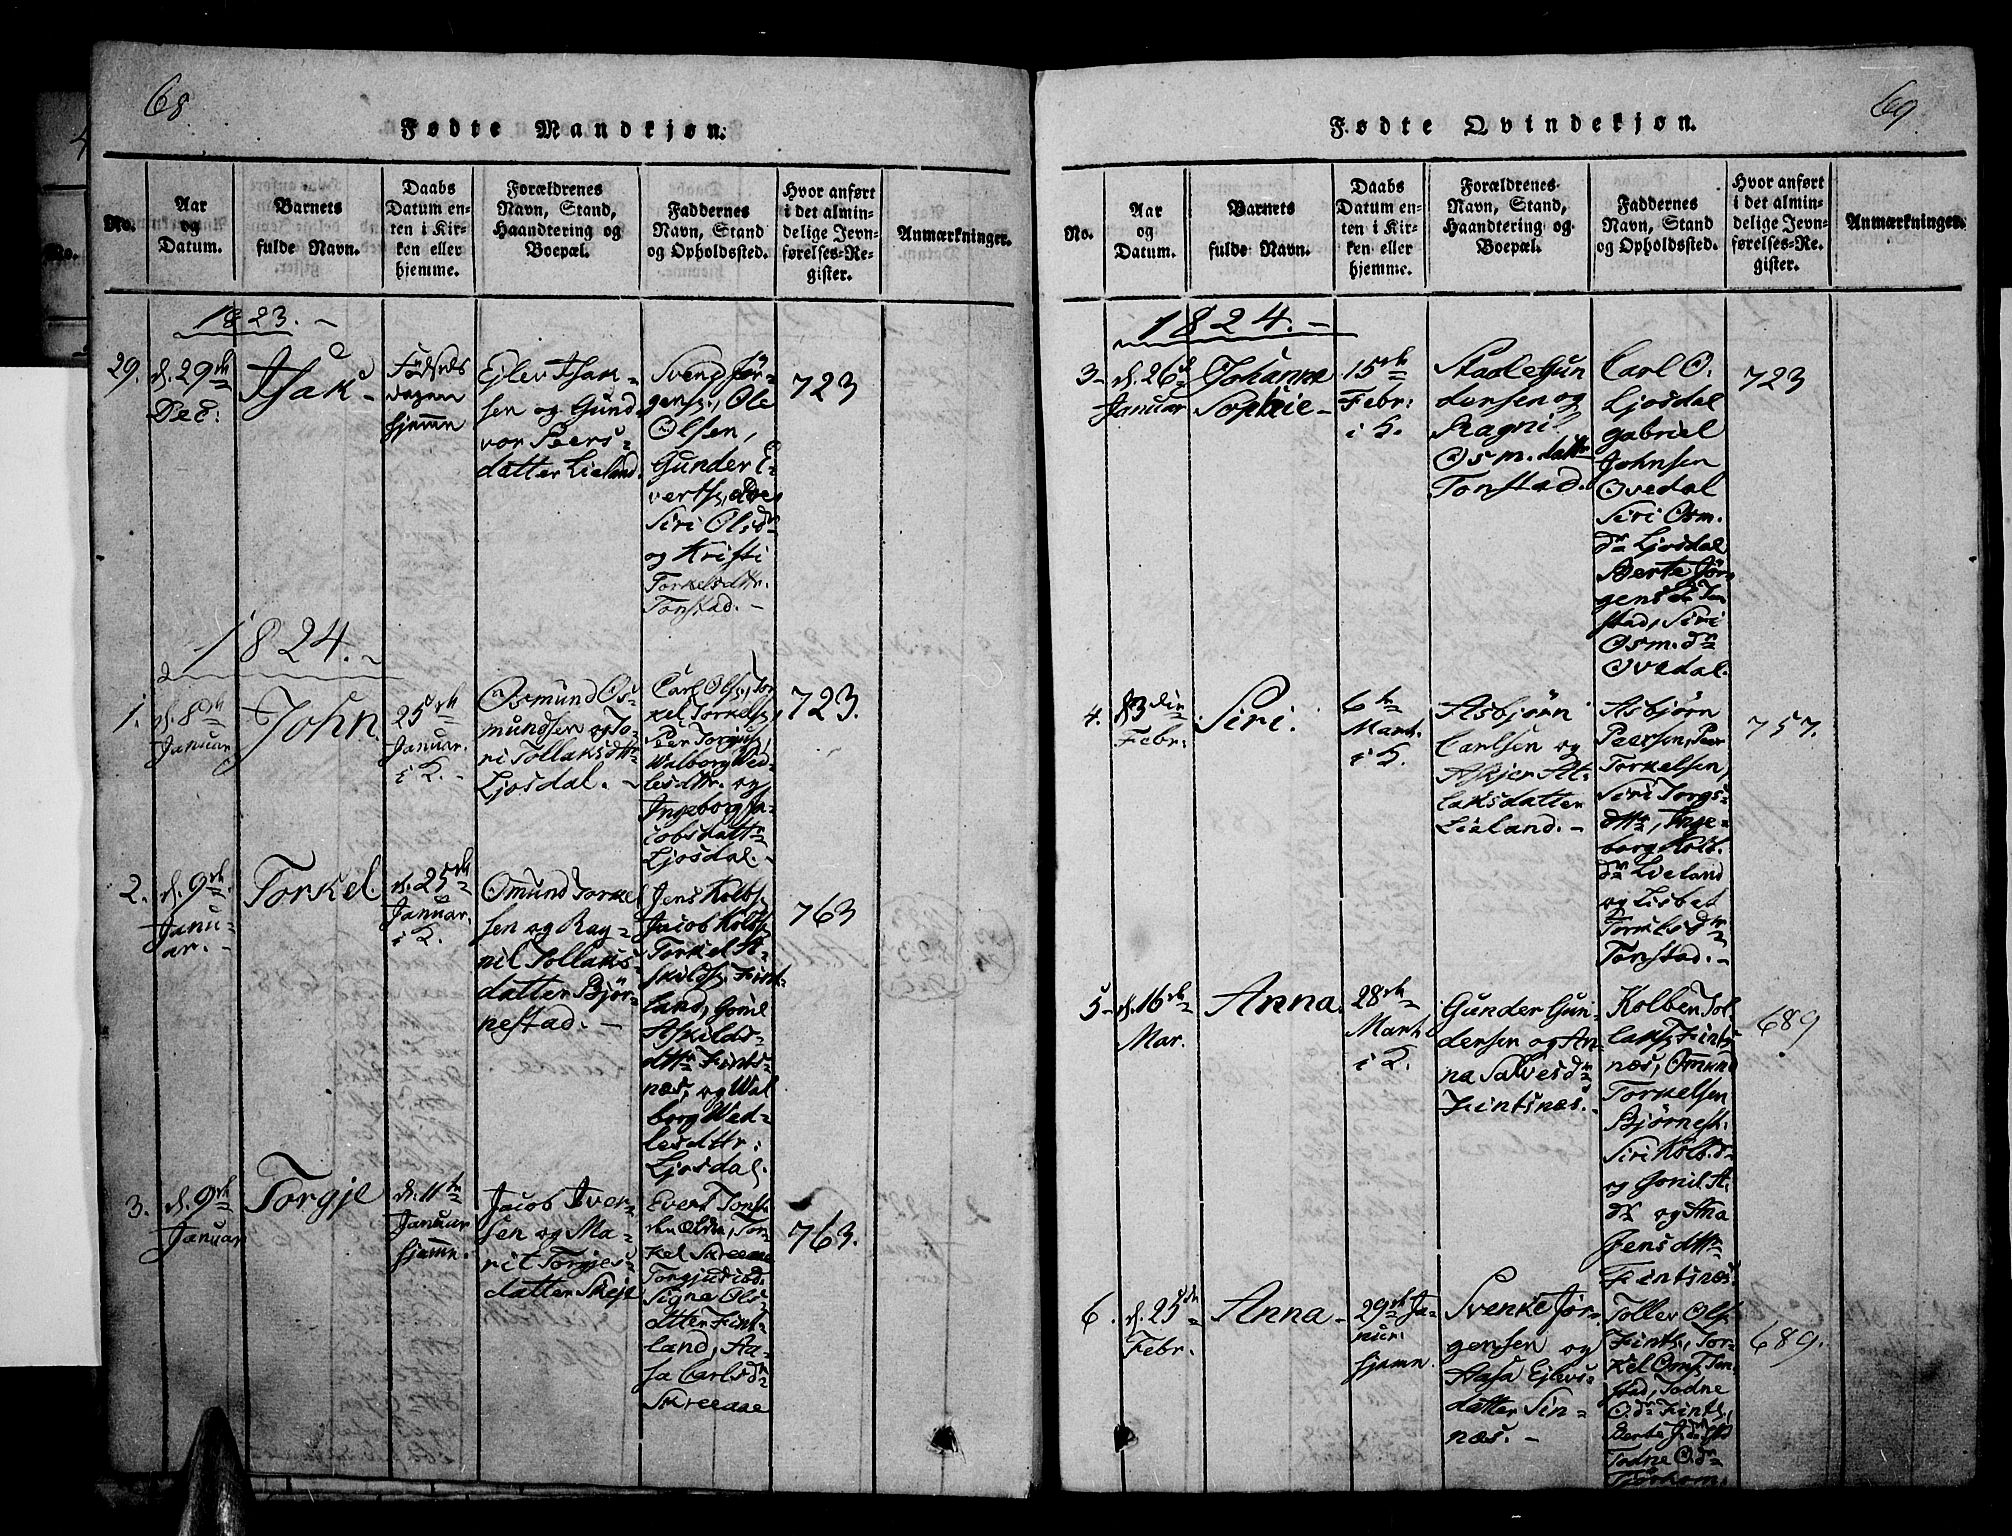 68
Fødte Mandkjøn.
No.
Aar
og
Datum.
Barnets
fulde Navn.
Daabs
Datum en-
ten i Kir-
ken eller
hjemme.
Forældrenes
Navn, Stand,
Haandtering og
Boepæl.
Faddernes
Navn, Stand
og Opholdssted.
Hvor anført
i det almin-
delige Jevn-
førelses-Re-
gister.
Anmærkninger.
1823. -
29.
d. 29de
Dec:
Isak -
Fødsels
dagen
hjemme
Ejlev Isak-
sen og Gund-
vor Peers-
datter Lieland.
Svend Jør-
gens., Ole
Olsen,
Gunder E-
verts.,
Siri Olsdr
og Kristi
Torkelsdttr.
Tonstad. -
723
1824. -
1.
d. 8de
Januar
John
25de
Januar.
i K. -
Osmund Os-
mundsen og To-
ri Tollaksdttr
Ljosdal. -
Carl Ols., Tor-
kel Torkels.,
Peer Torjus.,
Walborg Wed-
lesdttr. og
Ingeborg Ja-
cobsdattr
Ljosdal. -
723.
2.
d. 9de
Janu-
ar. -
Torkel
d. 25de
Januar.
i K.
Omund Torkel-
sen og Rag-
nil Tollaks-
datter Bjør-
nestad. -
Jens Kolbs.
Jacob Kolbs.
Torkel A-
skilds. Fint-
land, Gonil
Askilds-
dttr Fints-
næs, og Wal-
borg Wed-
lesdttr:
Ljosdal.
763
3.
d. 9de
Januar
Torgje
d. 11te
Januar
hjemm.
Jacob Iver-
sen og Ma-
rit Torgjes-
datter Skeje
Evert Tonst.
Tor-
kel Skreaae
Signe Ols-
datter Fint-
land, Aa-
sa Carlsdr
Skreeaae
763.
69.
Fødte Qvindekjøn.
No.
Aar
og
Datum.
Barnets
fulde Navn.
Daabs
Datum en-
ten i Kir-
ken eller
hjemme.
Forældrenes
Navn, Stand,
Haandtering og
Boepæl.
Faddernes
Navn, Stand
og Opholdssted.
Hvor anført
i det almin-
delige Jevn-
førelses-Re-
gister.
Anmærkninger.
1824. -
3-
d. 26d
Januar
Johanna
Sophie -
15de
Febr:
i H.
Staale Gun-
dersen og
Ragnil
Osm. dattr
Tonstad.
Carl O.
Ljosdal
Gabriel
Johnsen
Ovedal
Siri Osm.
dr Ljosdal
Berte Jør-
gensdr Ton-
stad, Siri
Osm. dr
Ovedal.
723
4.
Febr:
Siri.
6te
Mart.
i H.
Asbjørn
Carlsen og
Askjer At-
laksdatter
Lieland. -
Asbjørn
Paersen, Peer
Torkelsen,
Siri Torgs-
dttr, Inge-
borg Kolb.
dr Lieland
og Lisbet
Torkelsdtr
Tonstad. -
757.
5-
d. 16de
Mar.
Anna.
28de
Mart.
i K.
Gunder Gun-
dersen og An-
na Salvesdr
Fintsnæs. -
Kolben Tol-
laks. Fints-
næs, Omund
Torkelsen
Bjørnest.
Siri Kolb. dr
og Gonil A.
dr og Ana
Jensdttr
Fintsnæs.
689
6.
d. 25de
Febr.
Anna -
29de Ja-
nuar.
hjemm.
Svenke Jør-
gensen og
Aasa Ejlevs-
datter Sin-
næs. -
Tollev Ols.
Fints., Tor-
kel Oms. Ton-
stad, Todne
O. dr Fints.,
Berte
Todne O. dr
689.